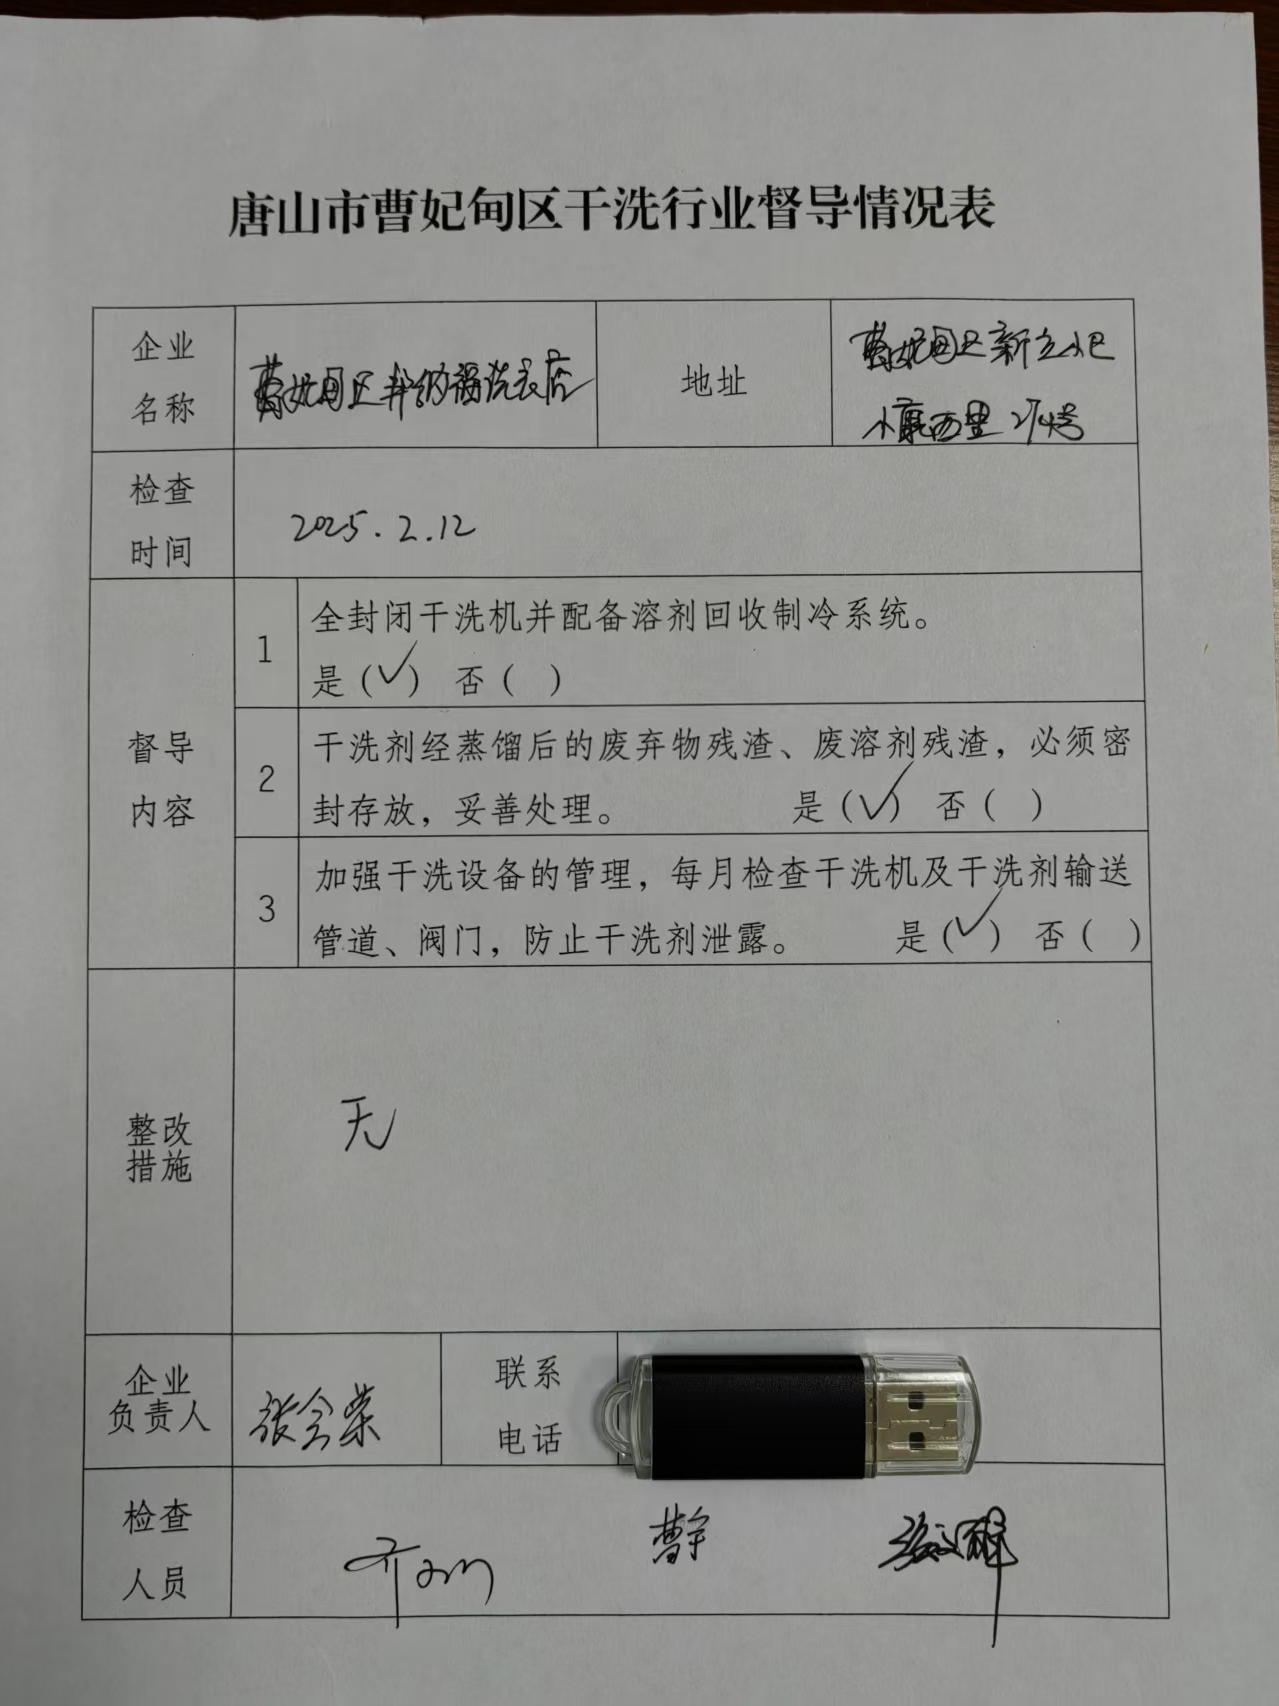 唐山市曹妃甸区干洗行业督导情况表
企业
名称
曹妃甸区 纳福洗衣店
地址
曹妃甸区新立小区
小康西里214号
检查
时间
2025.2.12
督导
内容
1
全封闭干洗机并配备溶剂回收制冷系统。
是(✓) 否( )
2
干洗剂经蒸馏后的废弃物残渣、废溶剂残渣，必须密
封存放，妥善处理。 是(✓) 否( )
3
加强干洗设备的管理，每月检查干洗机及干洗剂输送
管道、阀门，防止干洗剂泄露。 是(✓) 否( )
整改
措施
无
企业
负责人
张会荣
联系
电话
检查
人员
曹宇